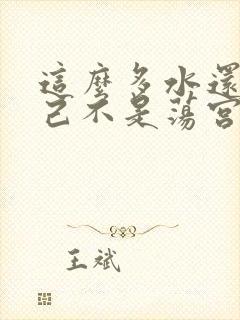 這麼多水還
己不是蕩宮
王斌